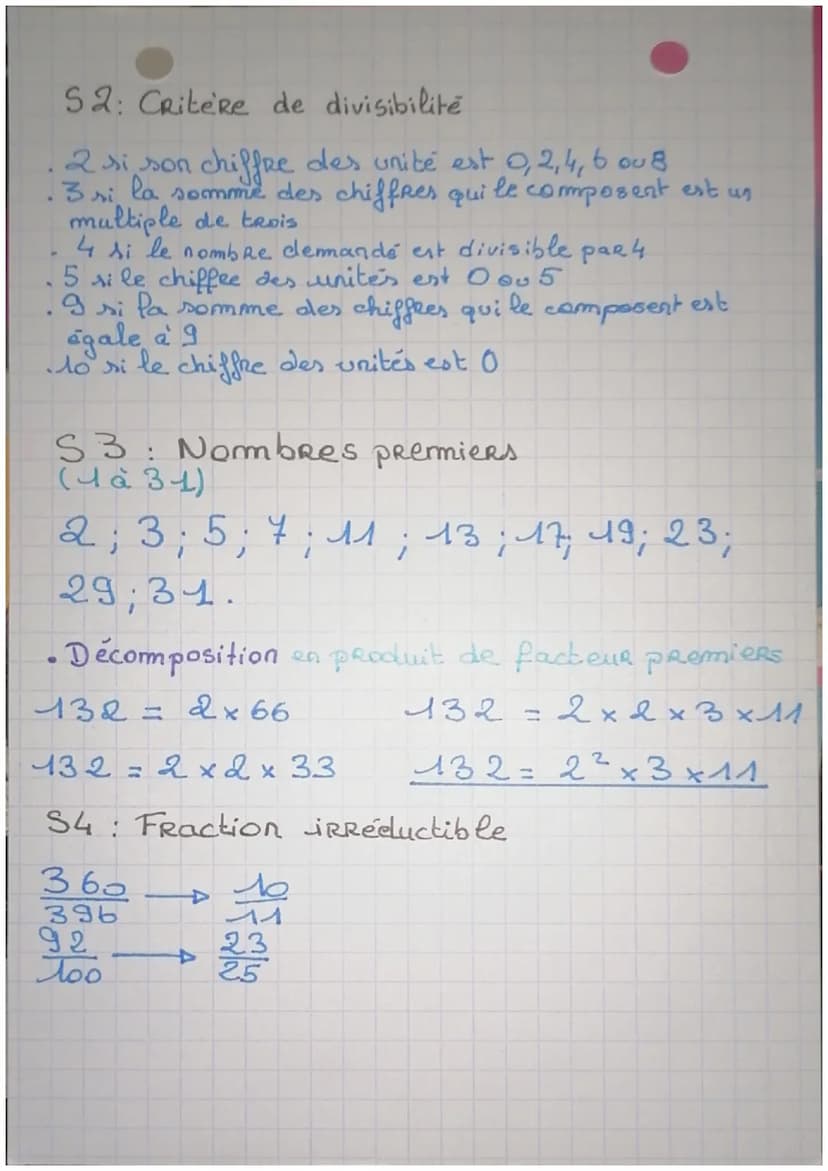 S2: Critère de divisibilité
. 2 si son chiffre des unité est 0,2,4,6 ou 8
. 3 si la somme des chiffres qui le composent est un
multiple de trois
. 4 si le nombre demandé est divisible par 4
. 5 si le chiffre des unités est 0 ou 5
. 9 si la somme des chiffres qui le composent est
égale à 9
. 10 si le chiffre des unités est 0
S3 : Nombres premiers
(1 à 31)
2 ; 3 ; 5 ; 7 ; 11 ; 13 ; 17; 19; 23;
29 ; 31.
• Décomposition en produit de facteur premiers
132 = 2 x 66 132 = 2 x 2 x 3 x 11
132 = 2 x 2 x 33 132 = 2² x 3 x 11
S4 : Fraction irréductible
360/396 → 10/11
92/100 → 23/25